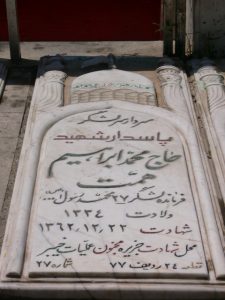 سردار لشگر
پاسدار شهید
حاج محمد ابراهیم
همت
فرمانده لشگر ۲۷ محمد رسول الله
ولادت ۱۳۳۴
شهادت ۱۳۶۲,۱۲,۲۲
محل شهادت جزیره مجنون عملیات خیبر
قطعه ۲۴ ردیف ۷۷ شماره ۲۷